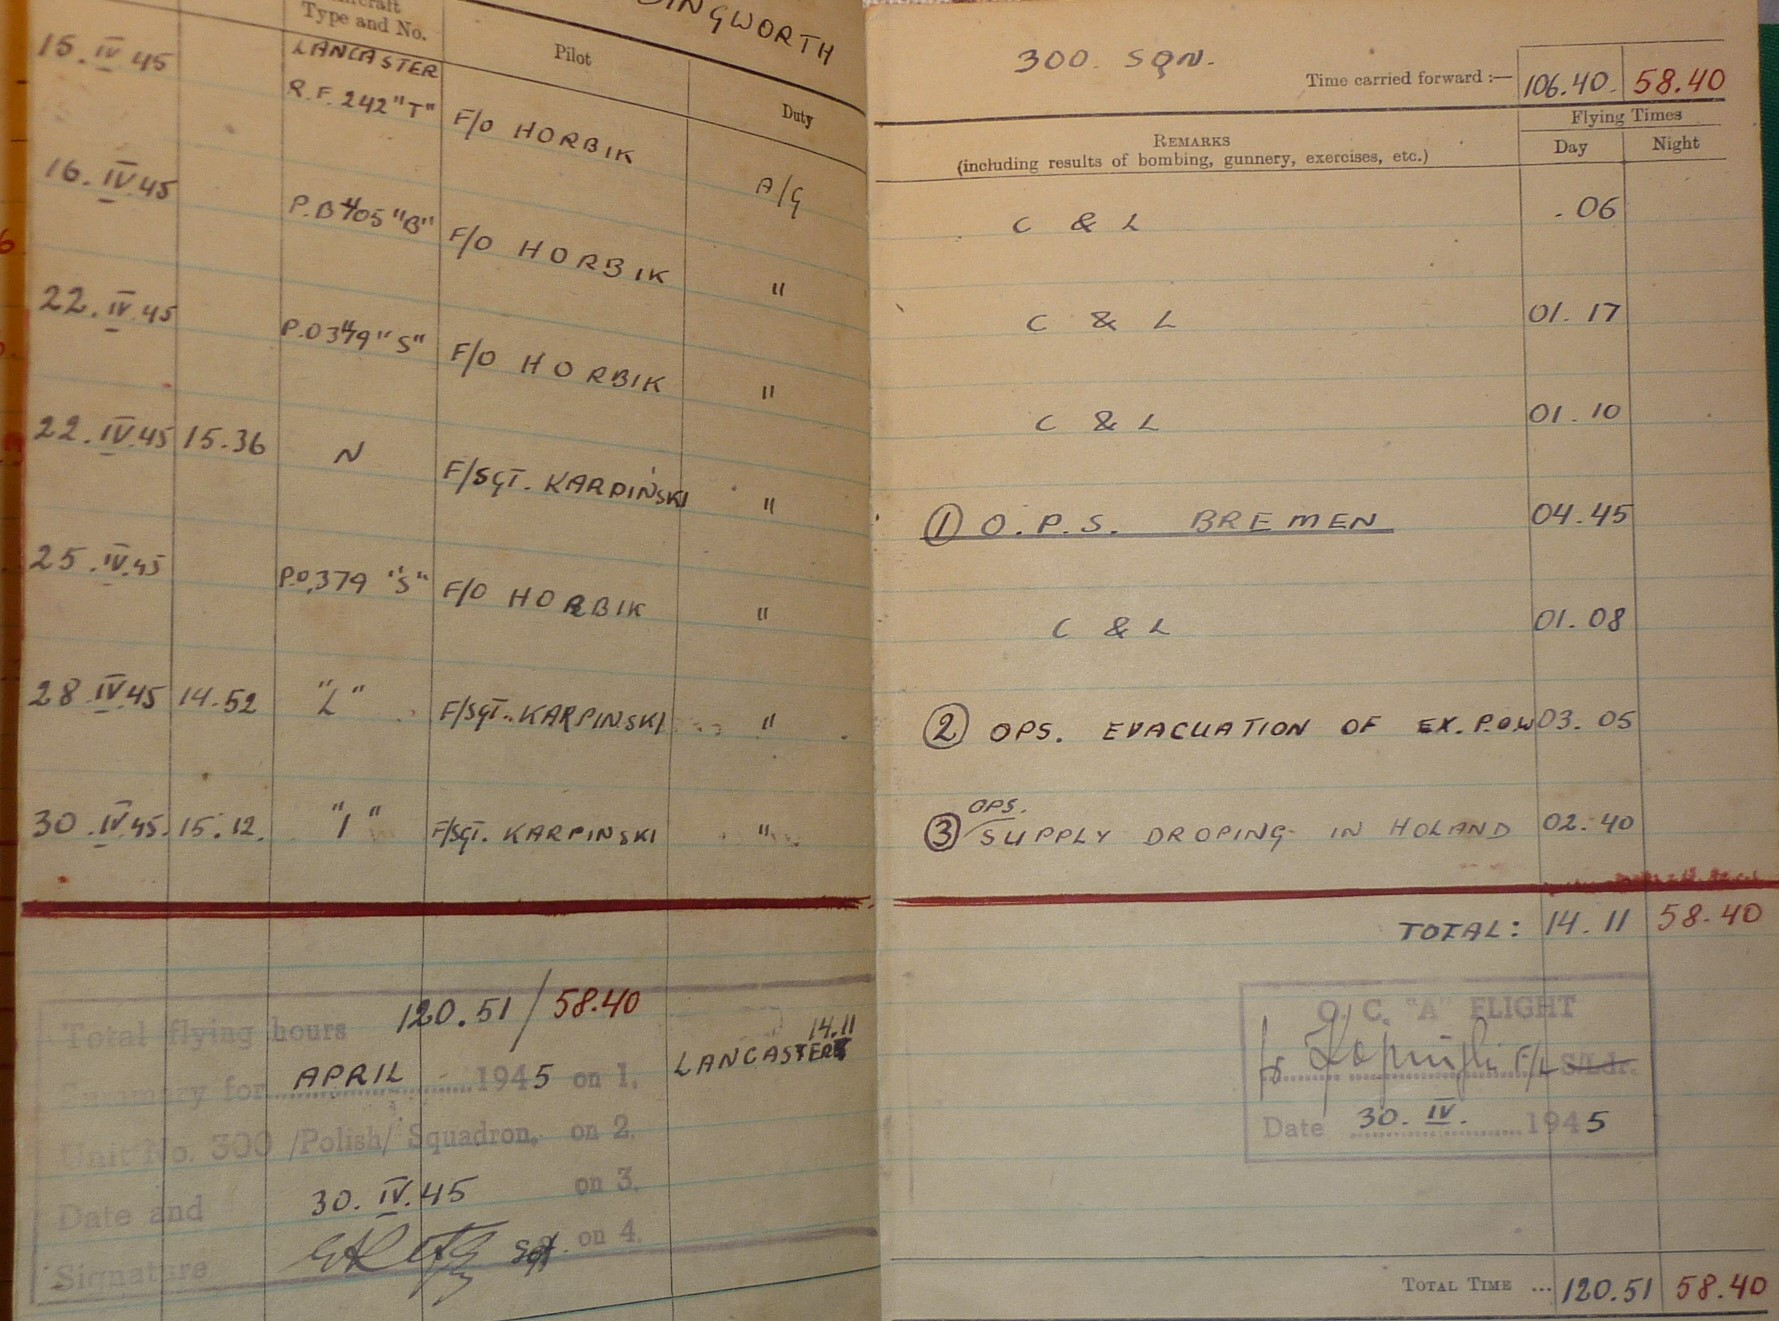 Type and No.
Pilot
Duty
15.IV 45 LANCASTER
R.F. 242 "T" F/O HORBIK A/G
16.IV 45 P.B 705 "B" F/O HORBIK "
22.IV.45 "S" F/O HORBIK "
22.IV.45 15.36 N F/SGT. KARPIŃSKI "
25.IV.45 P.O.379 "S" F/O HORBIK "
28.IV.45 14.52 "L" F/SGT. KARPINSKI "
30.IV.45. 15.12. "I" F/SGT. KARPINSKI "
Total flying hours 120.51 / 58.40
14.11
Summary for APRIL 1945 on 1. LANCASTER
Unit No. 300 /Polish/ Squadron, on 2.
on 3.
Date and 30.IV.45
on 4.
Signature Sgt.
300. SQN.
Time carried forward :— 106.40. 58.40
Flying Times
REMARKS
(including results of bombing, gunnery, exercises, etc.)
Day Night
C & L .06
C & L 01.17
C & L 01.10
① O.P.S. BREMEN 04.45
C & L 01.08
② OPS. EVACUATION OF EX.P.O.W 03.05
OPS.
③ SUPPLY DROPING IN HOLAND 02.40
TOTAL: 14.11 58.40
O. C. "A" FLIGHT
F/L S/Ldr.
Date 30.IV. 1945
TOTAL TIME ... 120.51 58.40